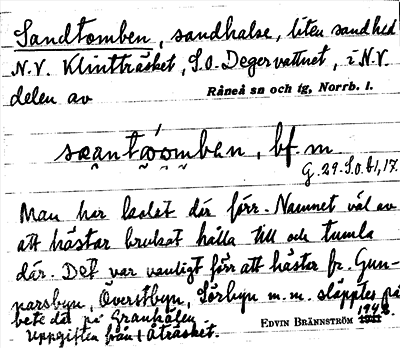 Sandtomben, sandhalse, liten sandhed
N.V. Klintträsket, S.O. Degervattnet, i N.V.
delen av
Råneå sn och tg, Norrb. l.
bf. m
G. 29. S.O. 61, 17.
Man har kolat där förr. Namnet väl av
att hästar brukat hålla till och tumla
där. Det var vanligt förr att hästar fr. Gun-
narsbyn, Överstbyn, Sörbyn m.m. släpptes på
bete där på Granheden
Uppgiften från Åträsket.
EDVIN BRÄNNSTRÖM 1942